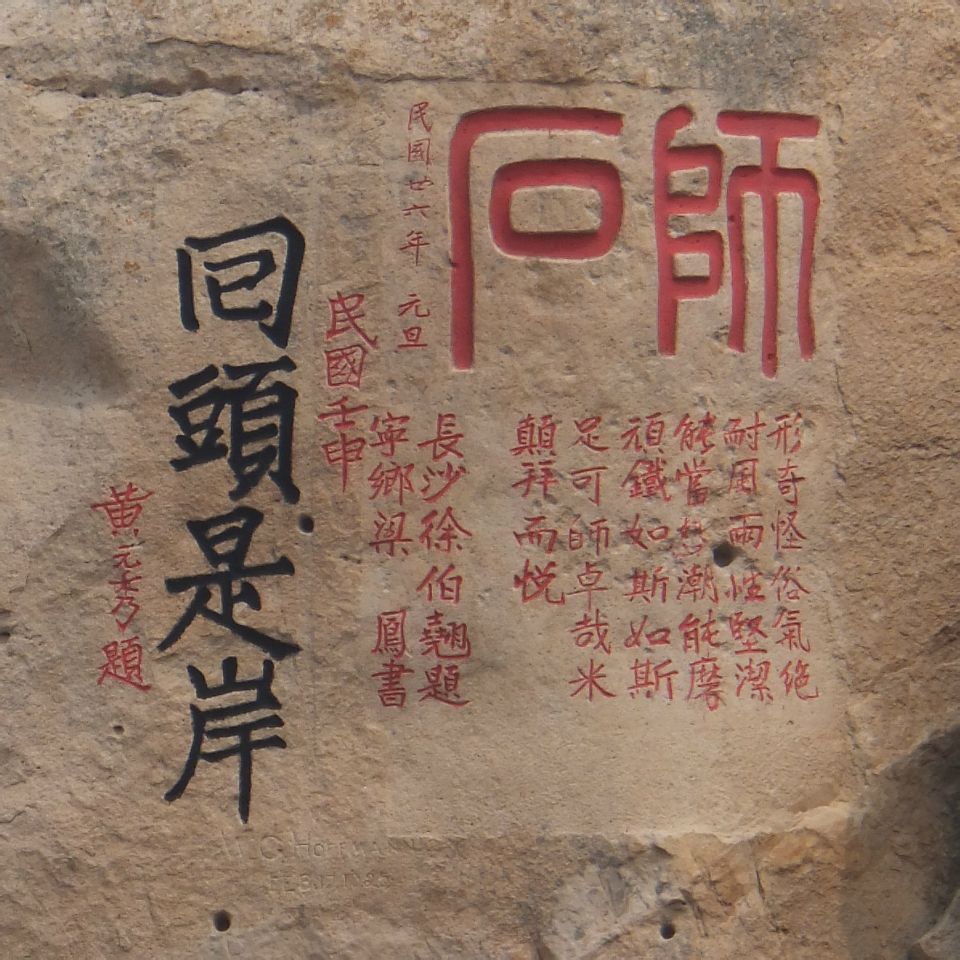 師石
形奇怪俗氣絶
耐風雨性堅潔
能當怒潮能磨
頑鐵如斯如斯
足可師卓哉米
顛拜而悦
民國廿六年 元旦
長沙徐伯翹題
寧鄉梁 鳳書
民國壬申
囘頭是岸
黃元秀題
C. HOFFMAN
FEB.